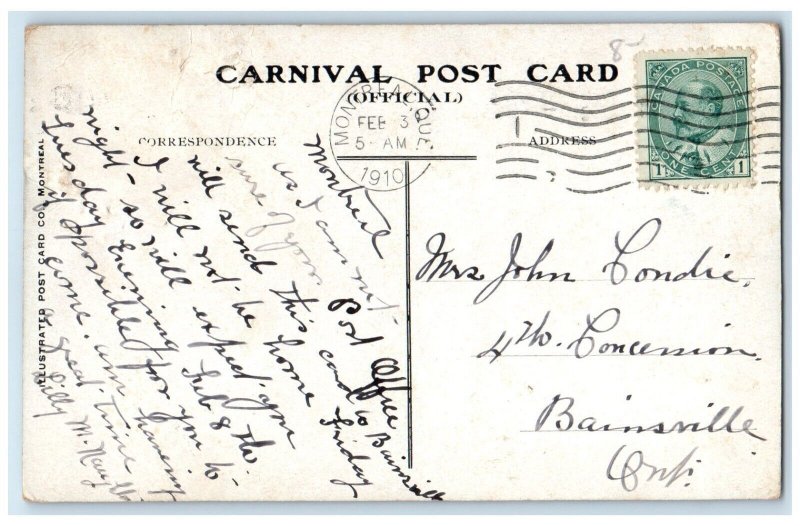 CARNIVAL POST CARD
(OFFICIAL)
CORRESPONDENCE
ADDRESS
MONTREAL, QUE.
FEB 3
5- AM
1910
CANADA POSTAGE
1 ONE CENT 1
8-
ILLUSTRATED POST CARD CO., MONTREAL
Montreal
as I am not
sure of your Post Office
will send this card to Bainsville
I will not be home Friday
night - so will expect you
Tuesday Evening Feb 8 th.
if possible for you to
come. am having
a great time
Lilly M.
Mrs John Condie,
4th. Concession.
Bainsville
Ont.